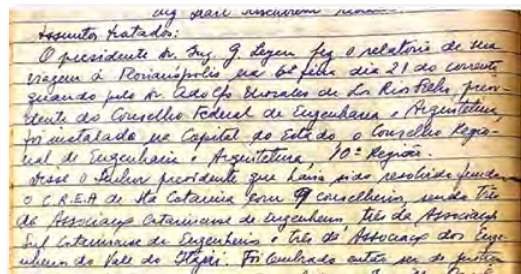 Assuntos tratados:
O presidente Dr. Eng. G. fez o relatorio de sua
viagem à Florianópolis na 6ª feira dia 21 do corrente
quando pelo Dr. Adolfo Morales de Los Rios Filho, presi-
dente do Conselho Federal de Engenharia e Arquitetura,
foi instalado na Capital do Estado o Conselho Regio-
nal de Engenharia e Arquitetura, 10ª Região.
Disse o Senhor presidente que havia sido resolvido fundar
o C.R.E.A de Sta Catarina com 9 conselheiros, sendo três
da Associação Catarinense de engenheiros, três da Associação
Sul Catarinense de Engenheiros e três da Associação dos Enge-
nheiros do Vale do Itajaí. Foi lembrado então ser de justiça